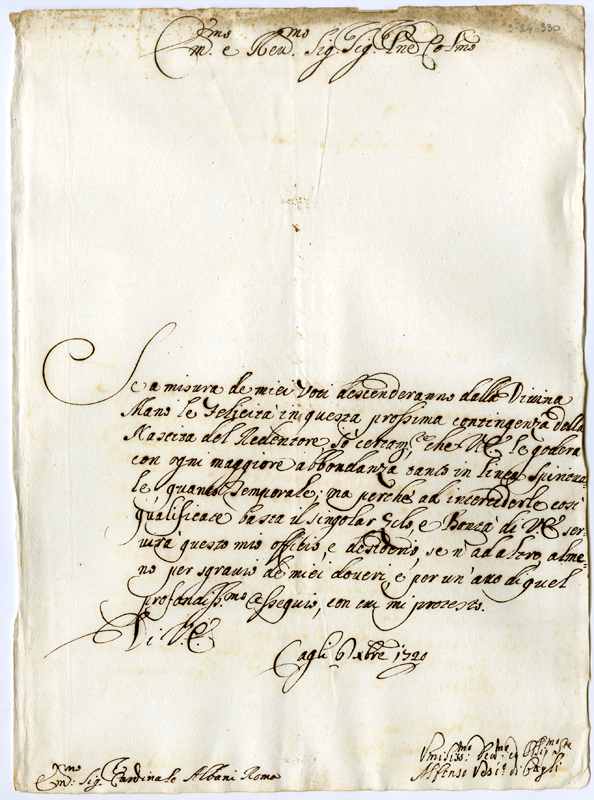 3-24-330
Em.mo e Reu.mo Sig. Sig. Pne Colmo
Se a misura de miei Voti descenderanno dalla Diuina
Mano le Felicità in questa prossima contingenza della
Nascita del Redentore Io certam.te che V.E. le goderà
con ogni maggiore abbondanza tanto in linea Spiritua-
le quanto Temporale; ma perche ad intercederle così
qualificate basta il singolar Zelo, e Bontà di V.E. ser-
uirà questo mio officio, e desiderio, se n' ad altro, alme-
no per sgrauio de miei doueri, e per un' atto di quel
profondiss.mo ossequio, con cui mi protesto.
Di V.E.
Cagli 6 Xbre 1720
Em.mo Sig. Cardinale Albani Roma
Vmiliss.mo Deu.mo ed Obblig.mo
Alfonso Vesc.o di Cagli